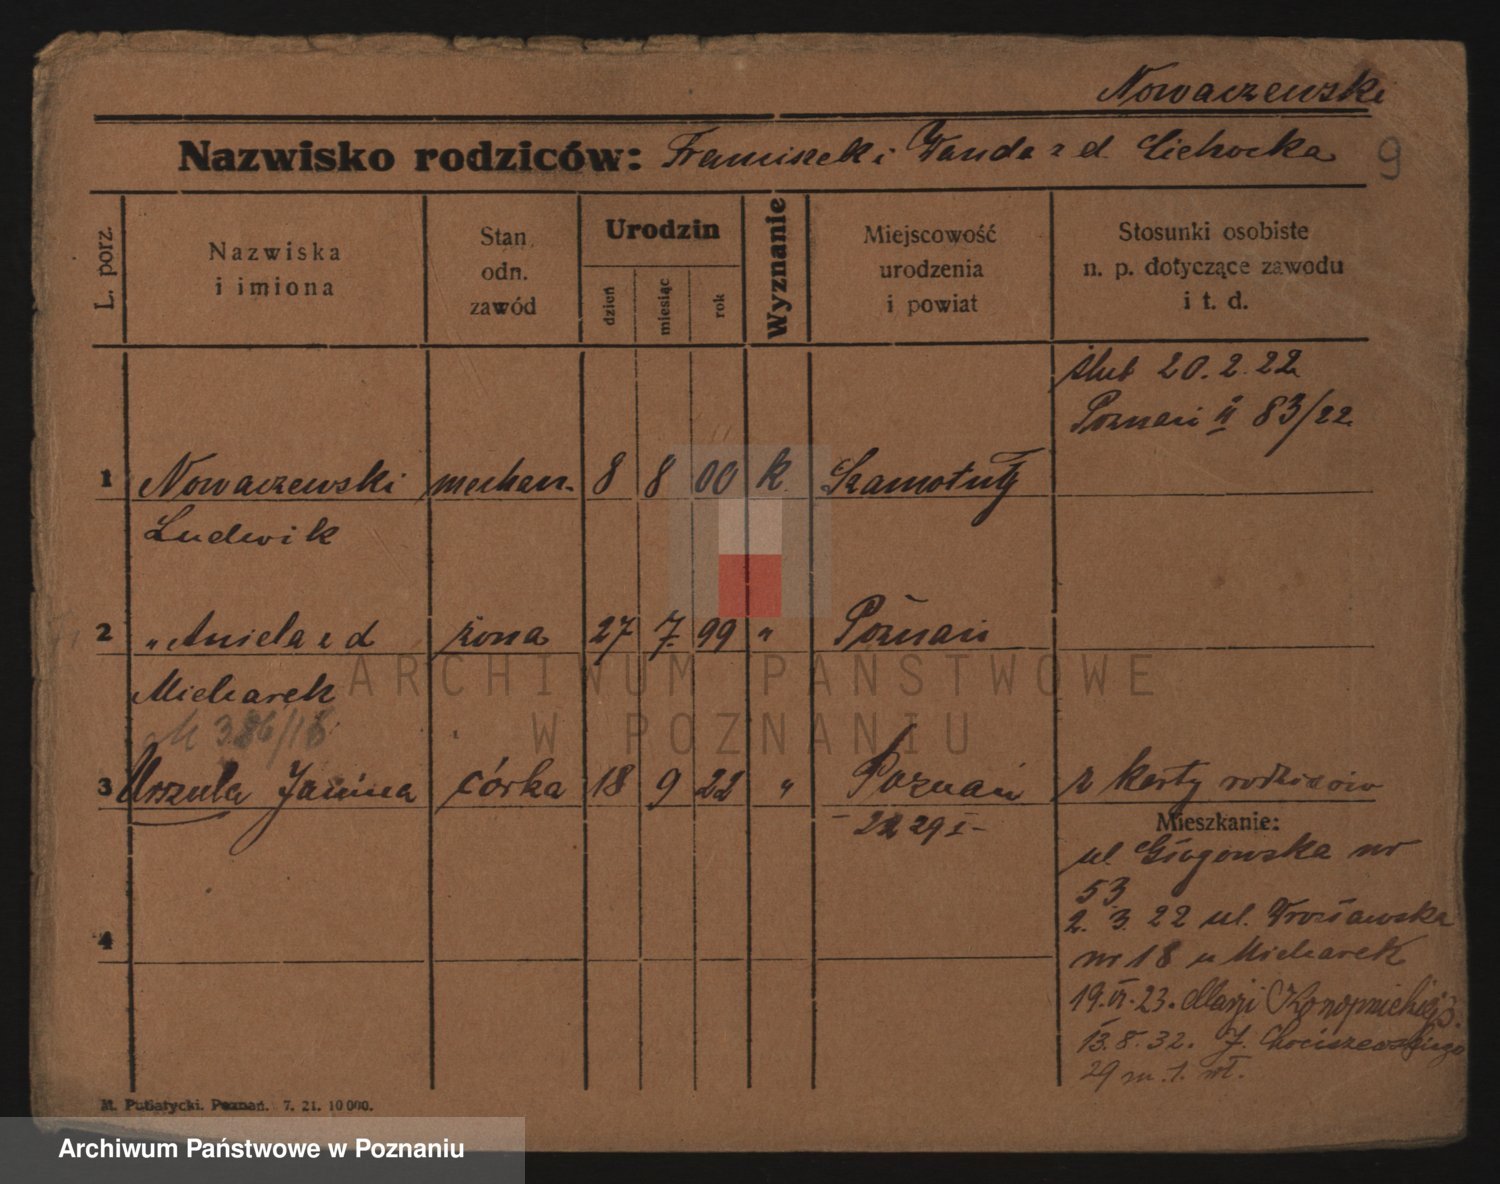 Nowaczewski
Nazwisko rodziców: Franciszek i Wanda z d. Cichocka 9
L. porz.
Nazwiska
i imiona
Stan
odn.
zawód
Urodzin
dzień
miesiąc
rok
Wyznanie
Miejscowość
urodzenia
i powiat
Stosunki osobiste
n. p. dotyczące zawodu
i t. d.
ślub 20. 2. 22.
Poznań II 83/22.
1 Nowaczewski mechan. 8 8 00 k. Szamotuły
Ludwik
2 „ Aniela z d żona 27 7. 99 „ Poznań
Micharek
386/18
3 Urszula Janina córka 18 9 22 „ Poznań z karty rodziców
- 22 29 I -
Mieszkanie:
ul. Głogowska nr
53
2. 3. 22 ul.
nr 18 u Micharek
19. VI. 23. Marji Konopnickiej 3.
13. 8. 32. J. Chociszewskiego
29 m. 1. wł.
4
M. Putiatycki. Poznań. 7. 21. 10 000.
ARCHIWUM PAŃSTWOWE
W POZNANIU
Archiwum Państwowe w Poznaniu